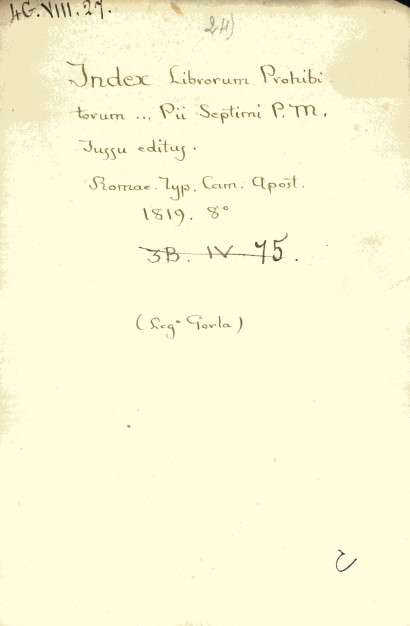 4G.VIII.27.
24)
Index Librorum Prohibi
torum ... Pii Septimi P.M.
Jussu editus.
Romae. Typ. Cam. Apost.
1819. 8°
3B. IV 75.
(Leg° Gorla)